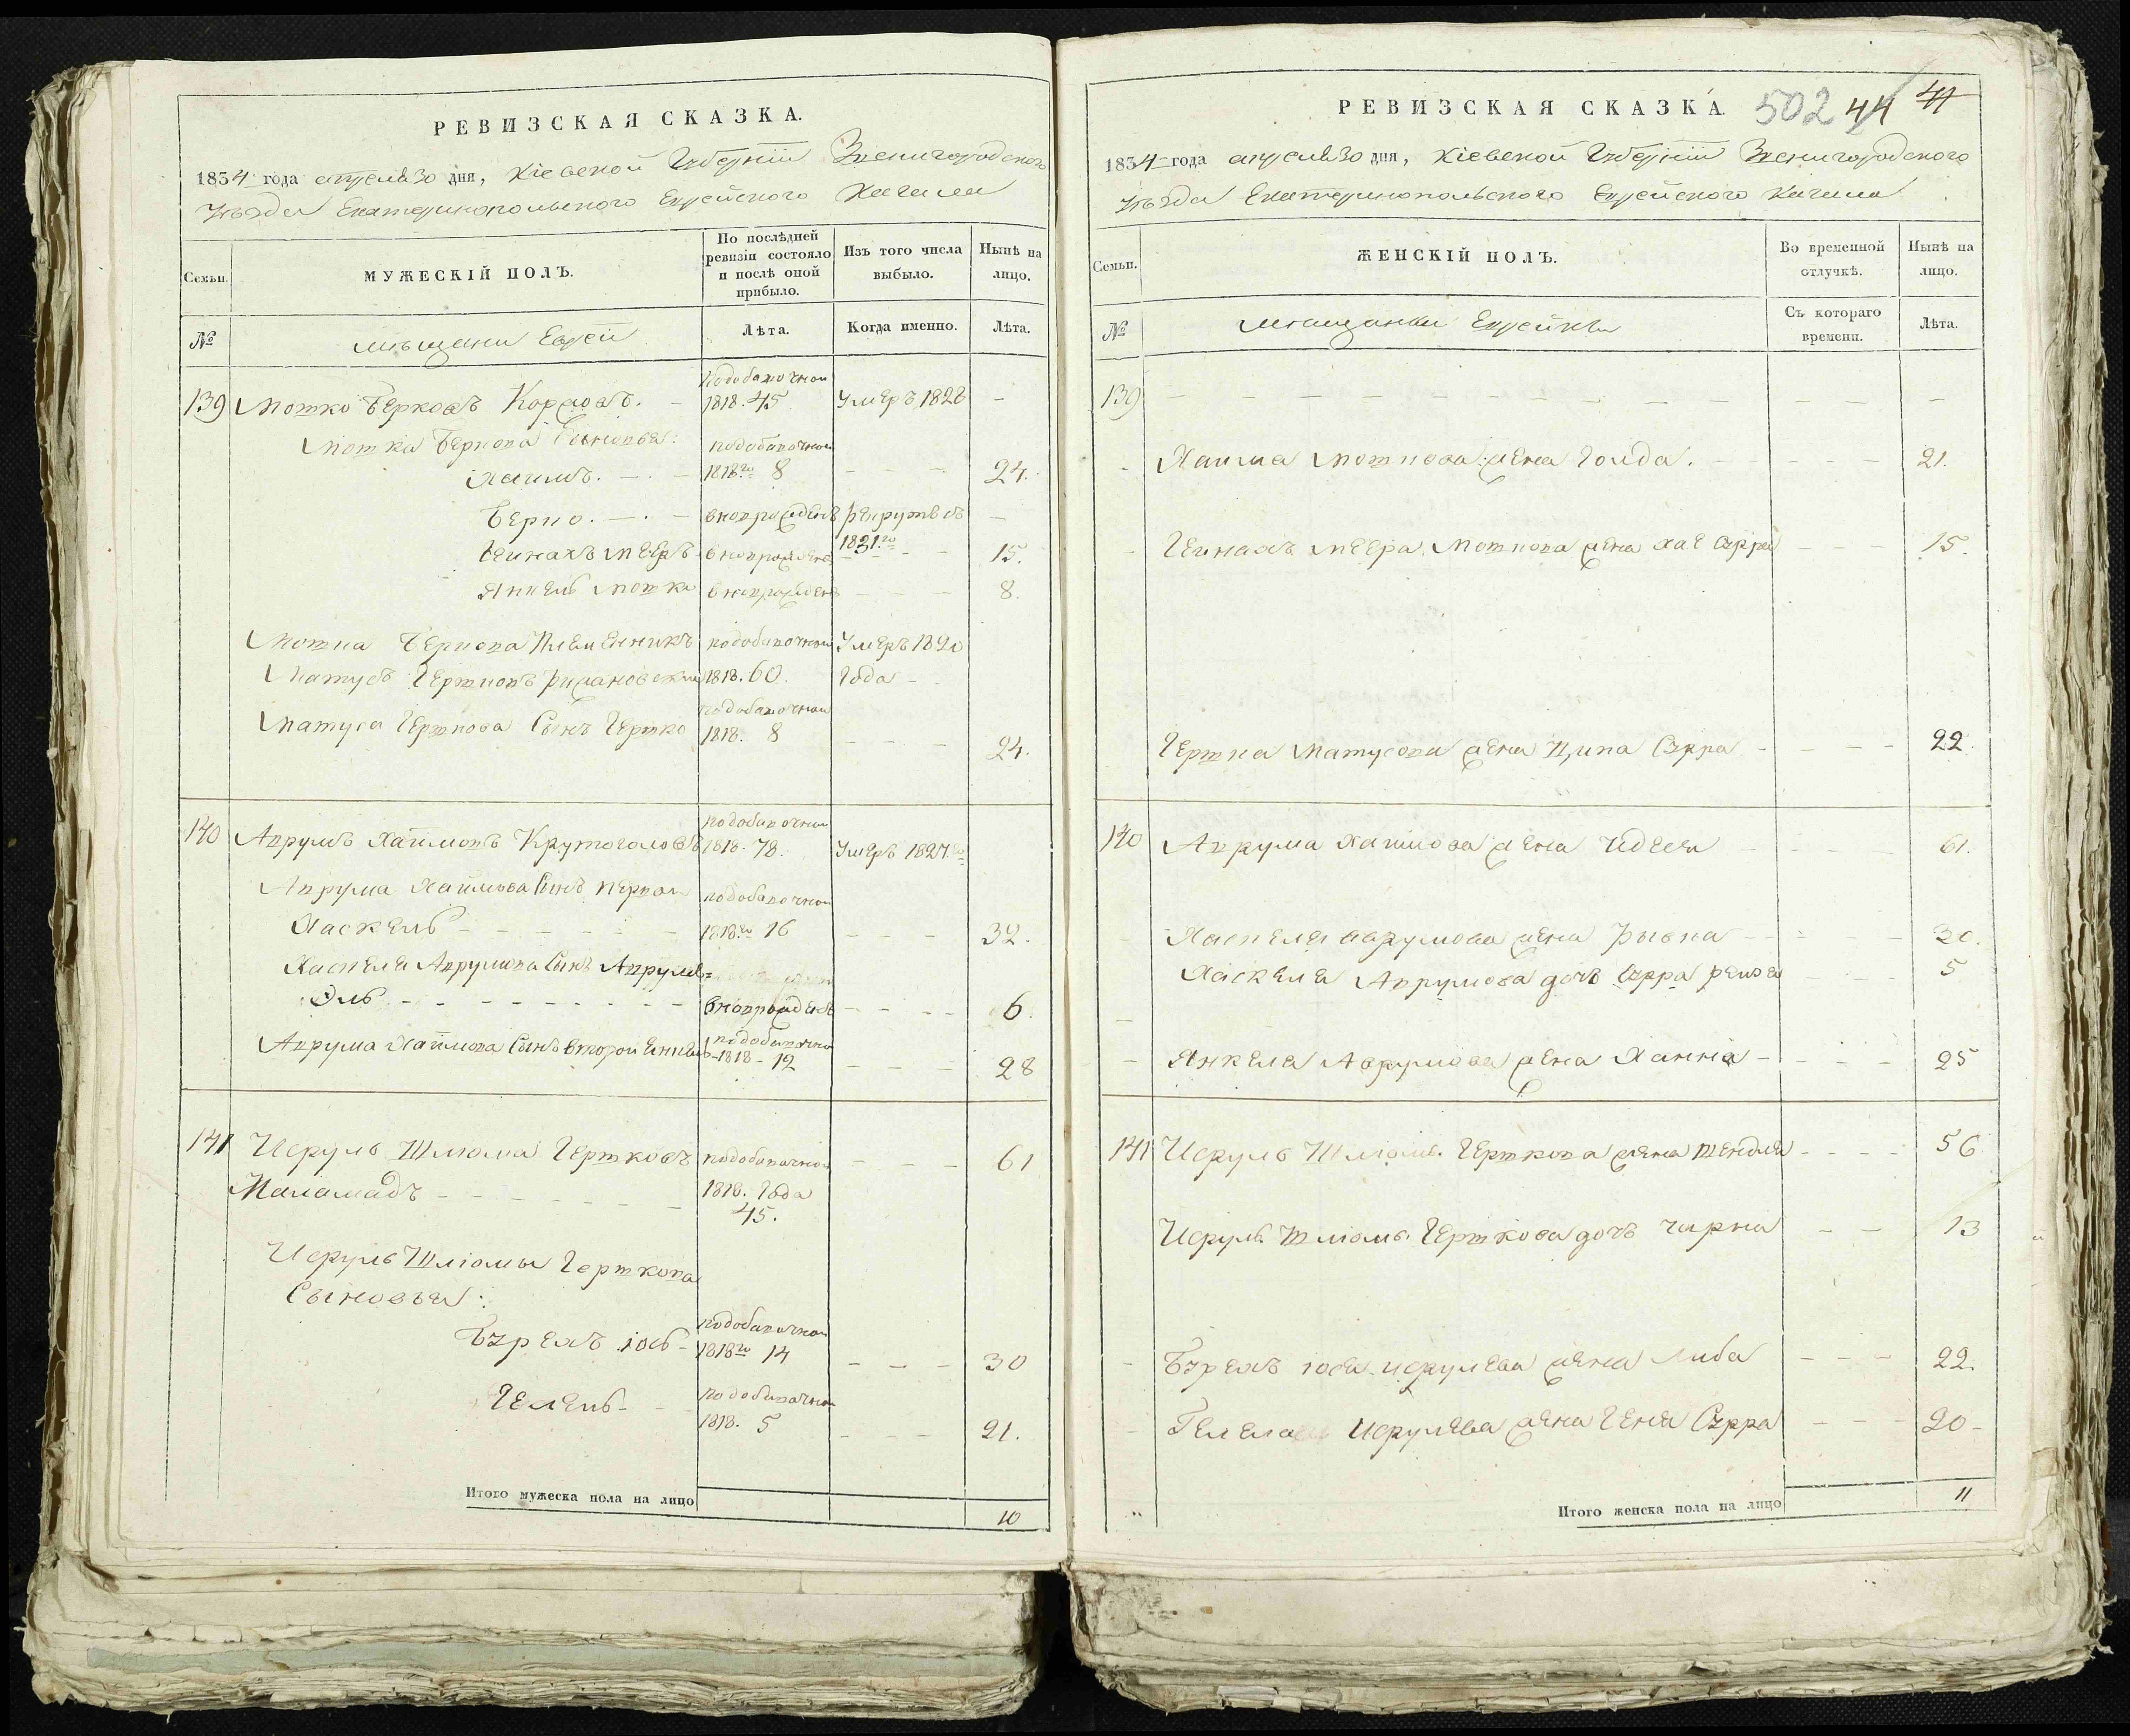 РЕВИЗСКАЯ СКАЗКА.
1834 года апреля 30 дня, Кіевской Губерніи Звенигородского
Уѣзда Екатеринопольского Еврейского Кагала
Семьи.
МУЖЕСКІЙ ПОЛЪ.
По послѣдней ревизіи состояло и послѣ оной прибыло.
Изъ того числа выбыло.
Нынѣ на лицо.
№
мѣщани Евреи
Лѣта.
Когда именно.
Лѣта.
139 Мошко Берковъ 1818. 45 Умеръ 1826 —
Мошка Беркова Сыновья:
Хаимъ. — 1818го 8 — — — 24.
Берко. — вновърожденъ —
1831го
Мееръ вновърожденъ — — 15.
Янкель Мошка вновърожденъ — — — 8.
Мошка Беркова Племенникъ Умеръ 1820
Матусъ Гершковъ 1818. 60. Года —
Матуса Гершкова Сынъ Гершко 1818. 8 — — — 24.
140 Аврумъ Хаимовъ Крутоголовъ 1818. 78. Умеръ 1827го
Аврума Хаимова Сынъ первой
Хаскель — — — — — 1818го 16 — — — 32.
Хаскеля Аврумова Сынъ Аврумъ=
Эль — — — — — — — вновърожденъ — — — 6.
Аврума Хаимова Сынъ второй Янкель 1818 — 12 — — — 28
141 Исруль Шлюма Гершковъ — — — 61
Маламадъ — — — — — — 1818. Года
45.
Исруль Шлюмы Гершкова
Сыновья:
Бурехъ Іось — 1818го 14 — — — 30
Гелель — 1818. 5 — — — 21.
Итого мужеска пола на лицо 10
РЕВИЗСКАЯ СКАЗКА. 502 44 41
1834 года апреля 30 дня, Кіевской Губерніи Звенигородского
Уѣзда Екатеринопольского Еврейского Кагала
Семьи.
ЖЕНСКІЙ ПОЛЪ.
Во временной отлучкѣ.
Нынѣ на лицо.
№
мѣщанки Еврейки
Съ котораго времени.
Лѣта.
139 — — — — — — — — — — — — — —
Хаима Мошкова жена Голда. — — — — 21.
Меера Мошкова жена Хае Сурра — — — 15.
Гершка Матусова жена Ципа Сурра — — — — 22.
140 Аврума Хаимова жена — — — — 61.
Хаскеля Аврумова жена Рывка — — — — 30.
Хаскеля Аврумова дочь Сурра Рейзя — — — 5
Янкеля Аврумова жена Ханна — — — — 25
141 Исруль Шлюмы Гершкова жена Шендля — — — — 56
Исруль Шлюмы Гершкова дочь Чарна — — 13
Бурехъ Іося Исрулева жена Либа — — — 22.
Гелеля Исрулева жена Геня Сурра — — 20 —
Итого женска пола на лицо 11